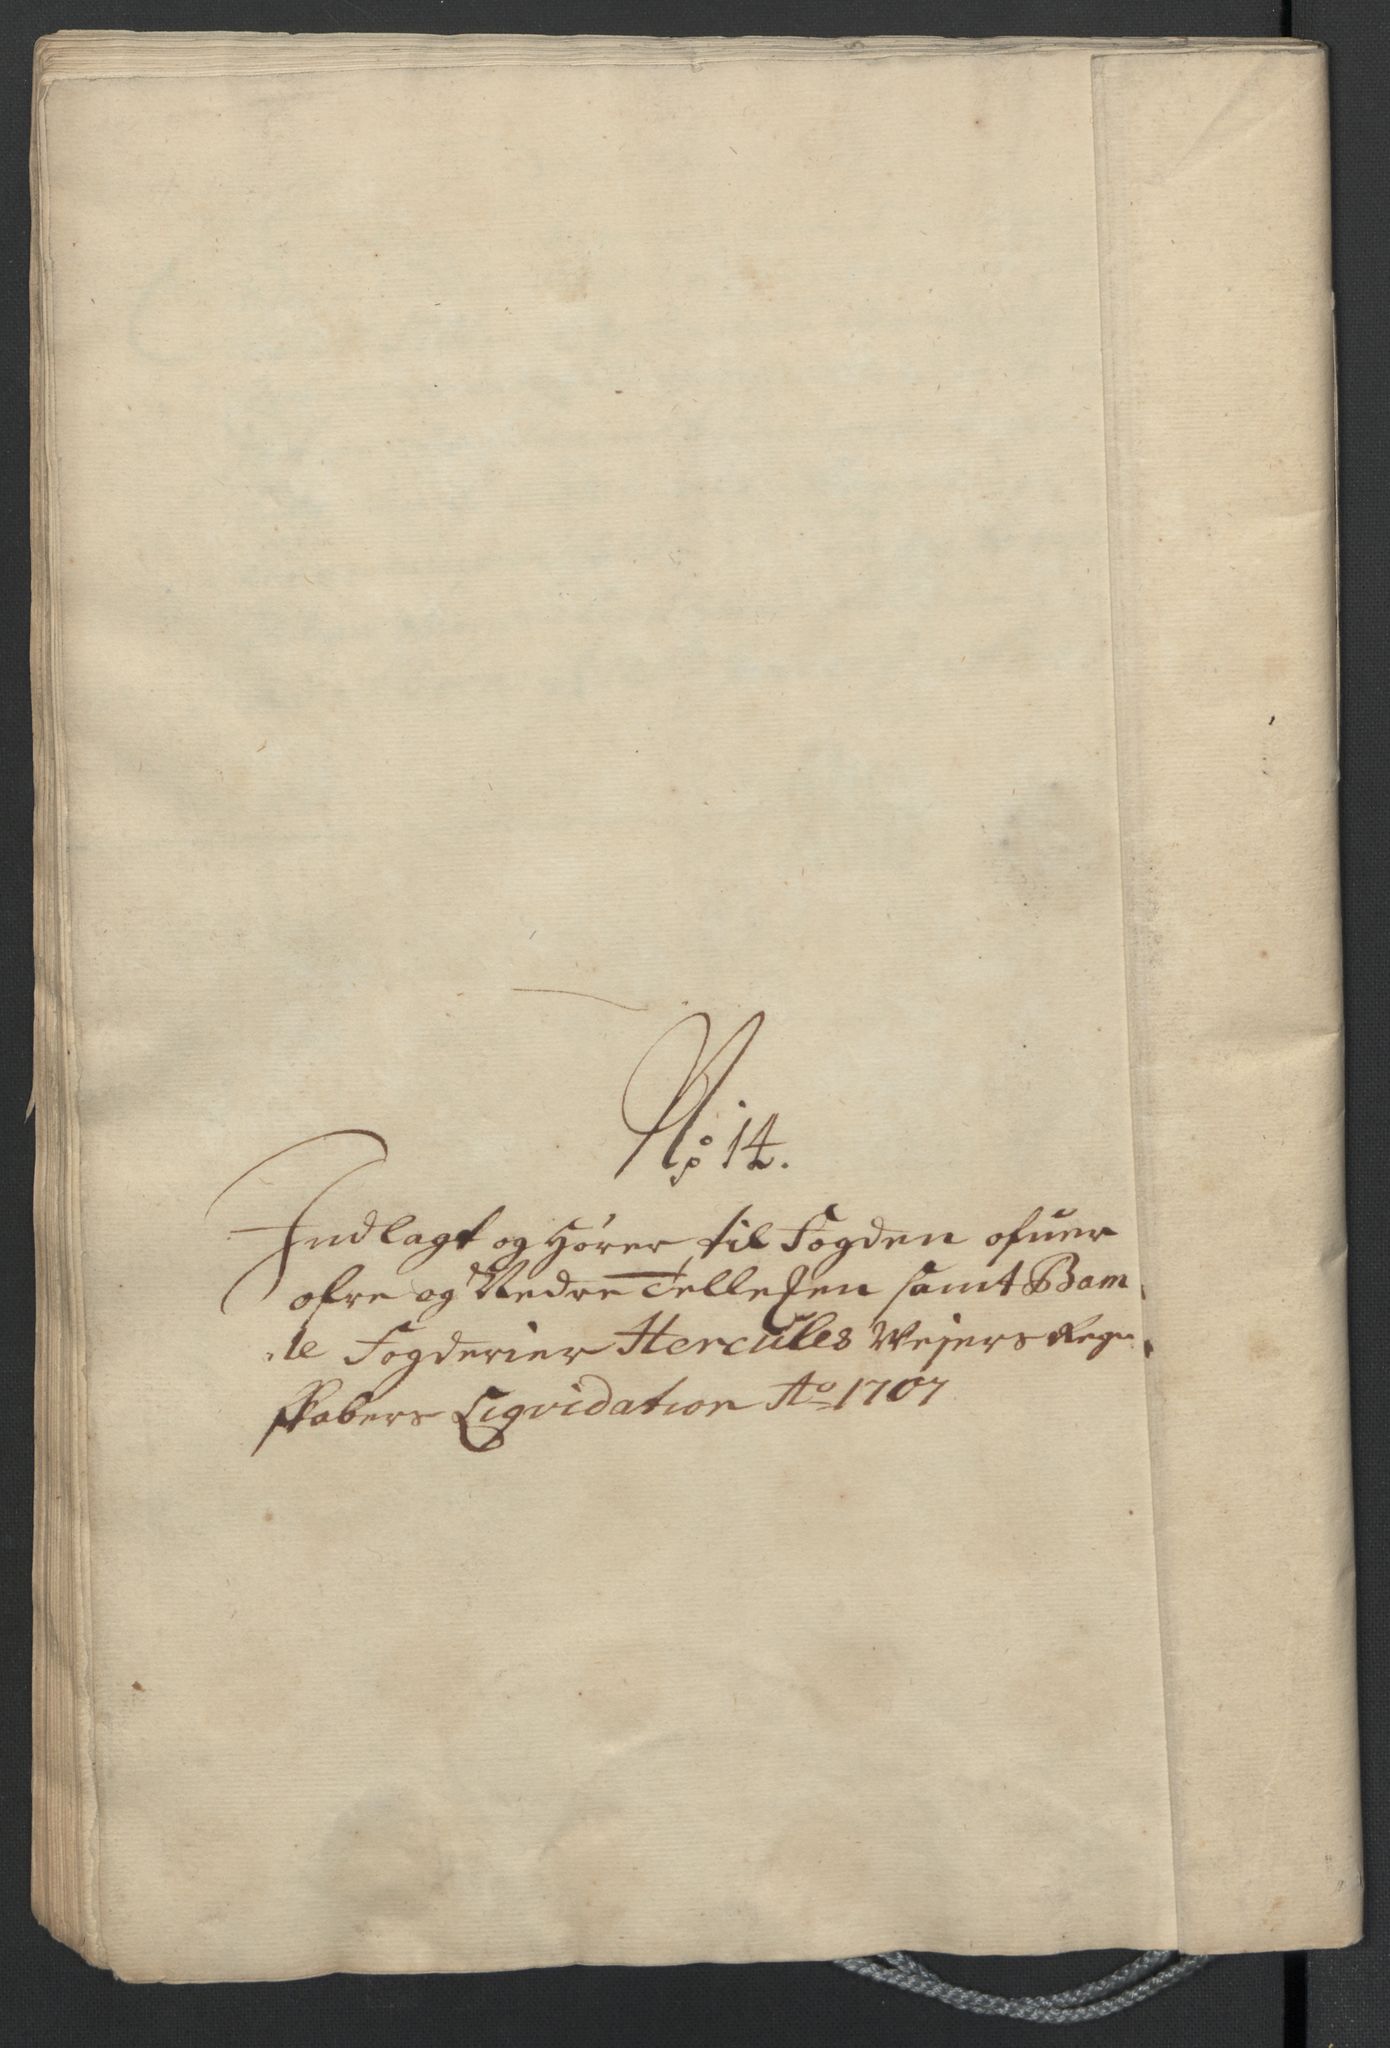 No: 14.
Indlagt og Hører til Fogden ofuer
øfre og Nedre Tellemken samt Bam
le Fogderier Hercules Weyers Regn
skabers Liqvidation Ao 1707